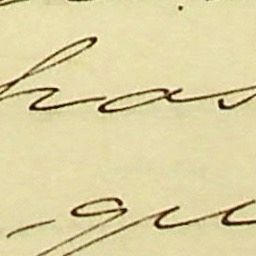 has
-qu